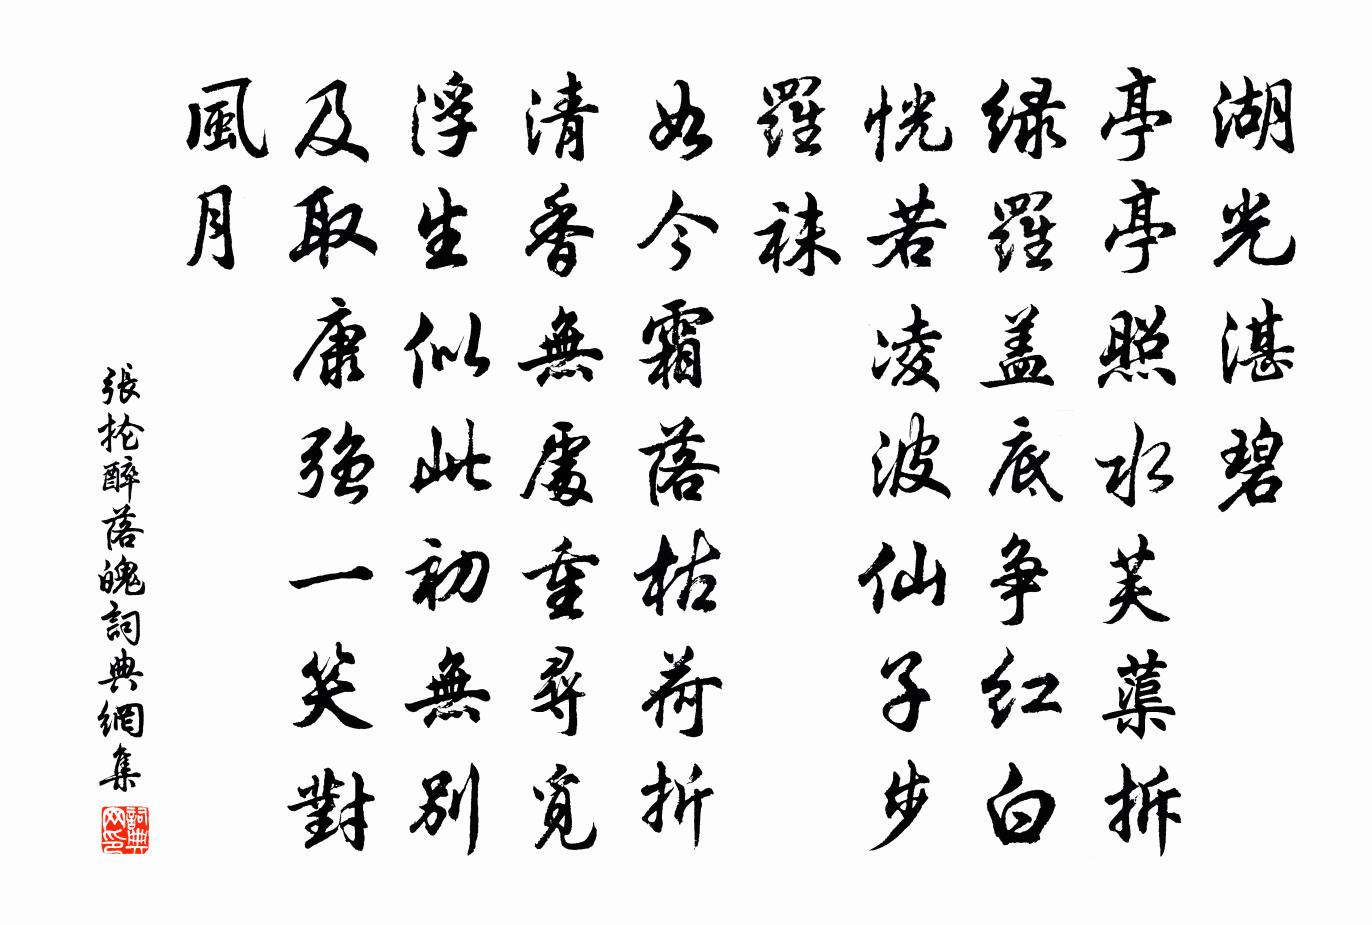 湖光湛碧
亭亭照水芙蕖拆
绿罗盖底争红白
恍若凌波仙子步
羅袜
如今霜落枯荷折
清香無處重尋覓
浮生似此初無別
及取康強一笑對
風月
張抡醉落魄詞典網集
詞典网印